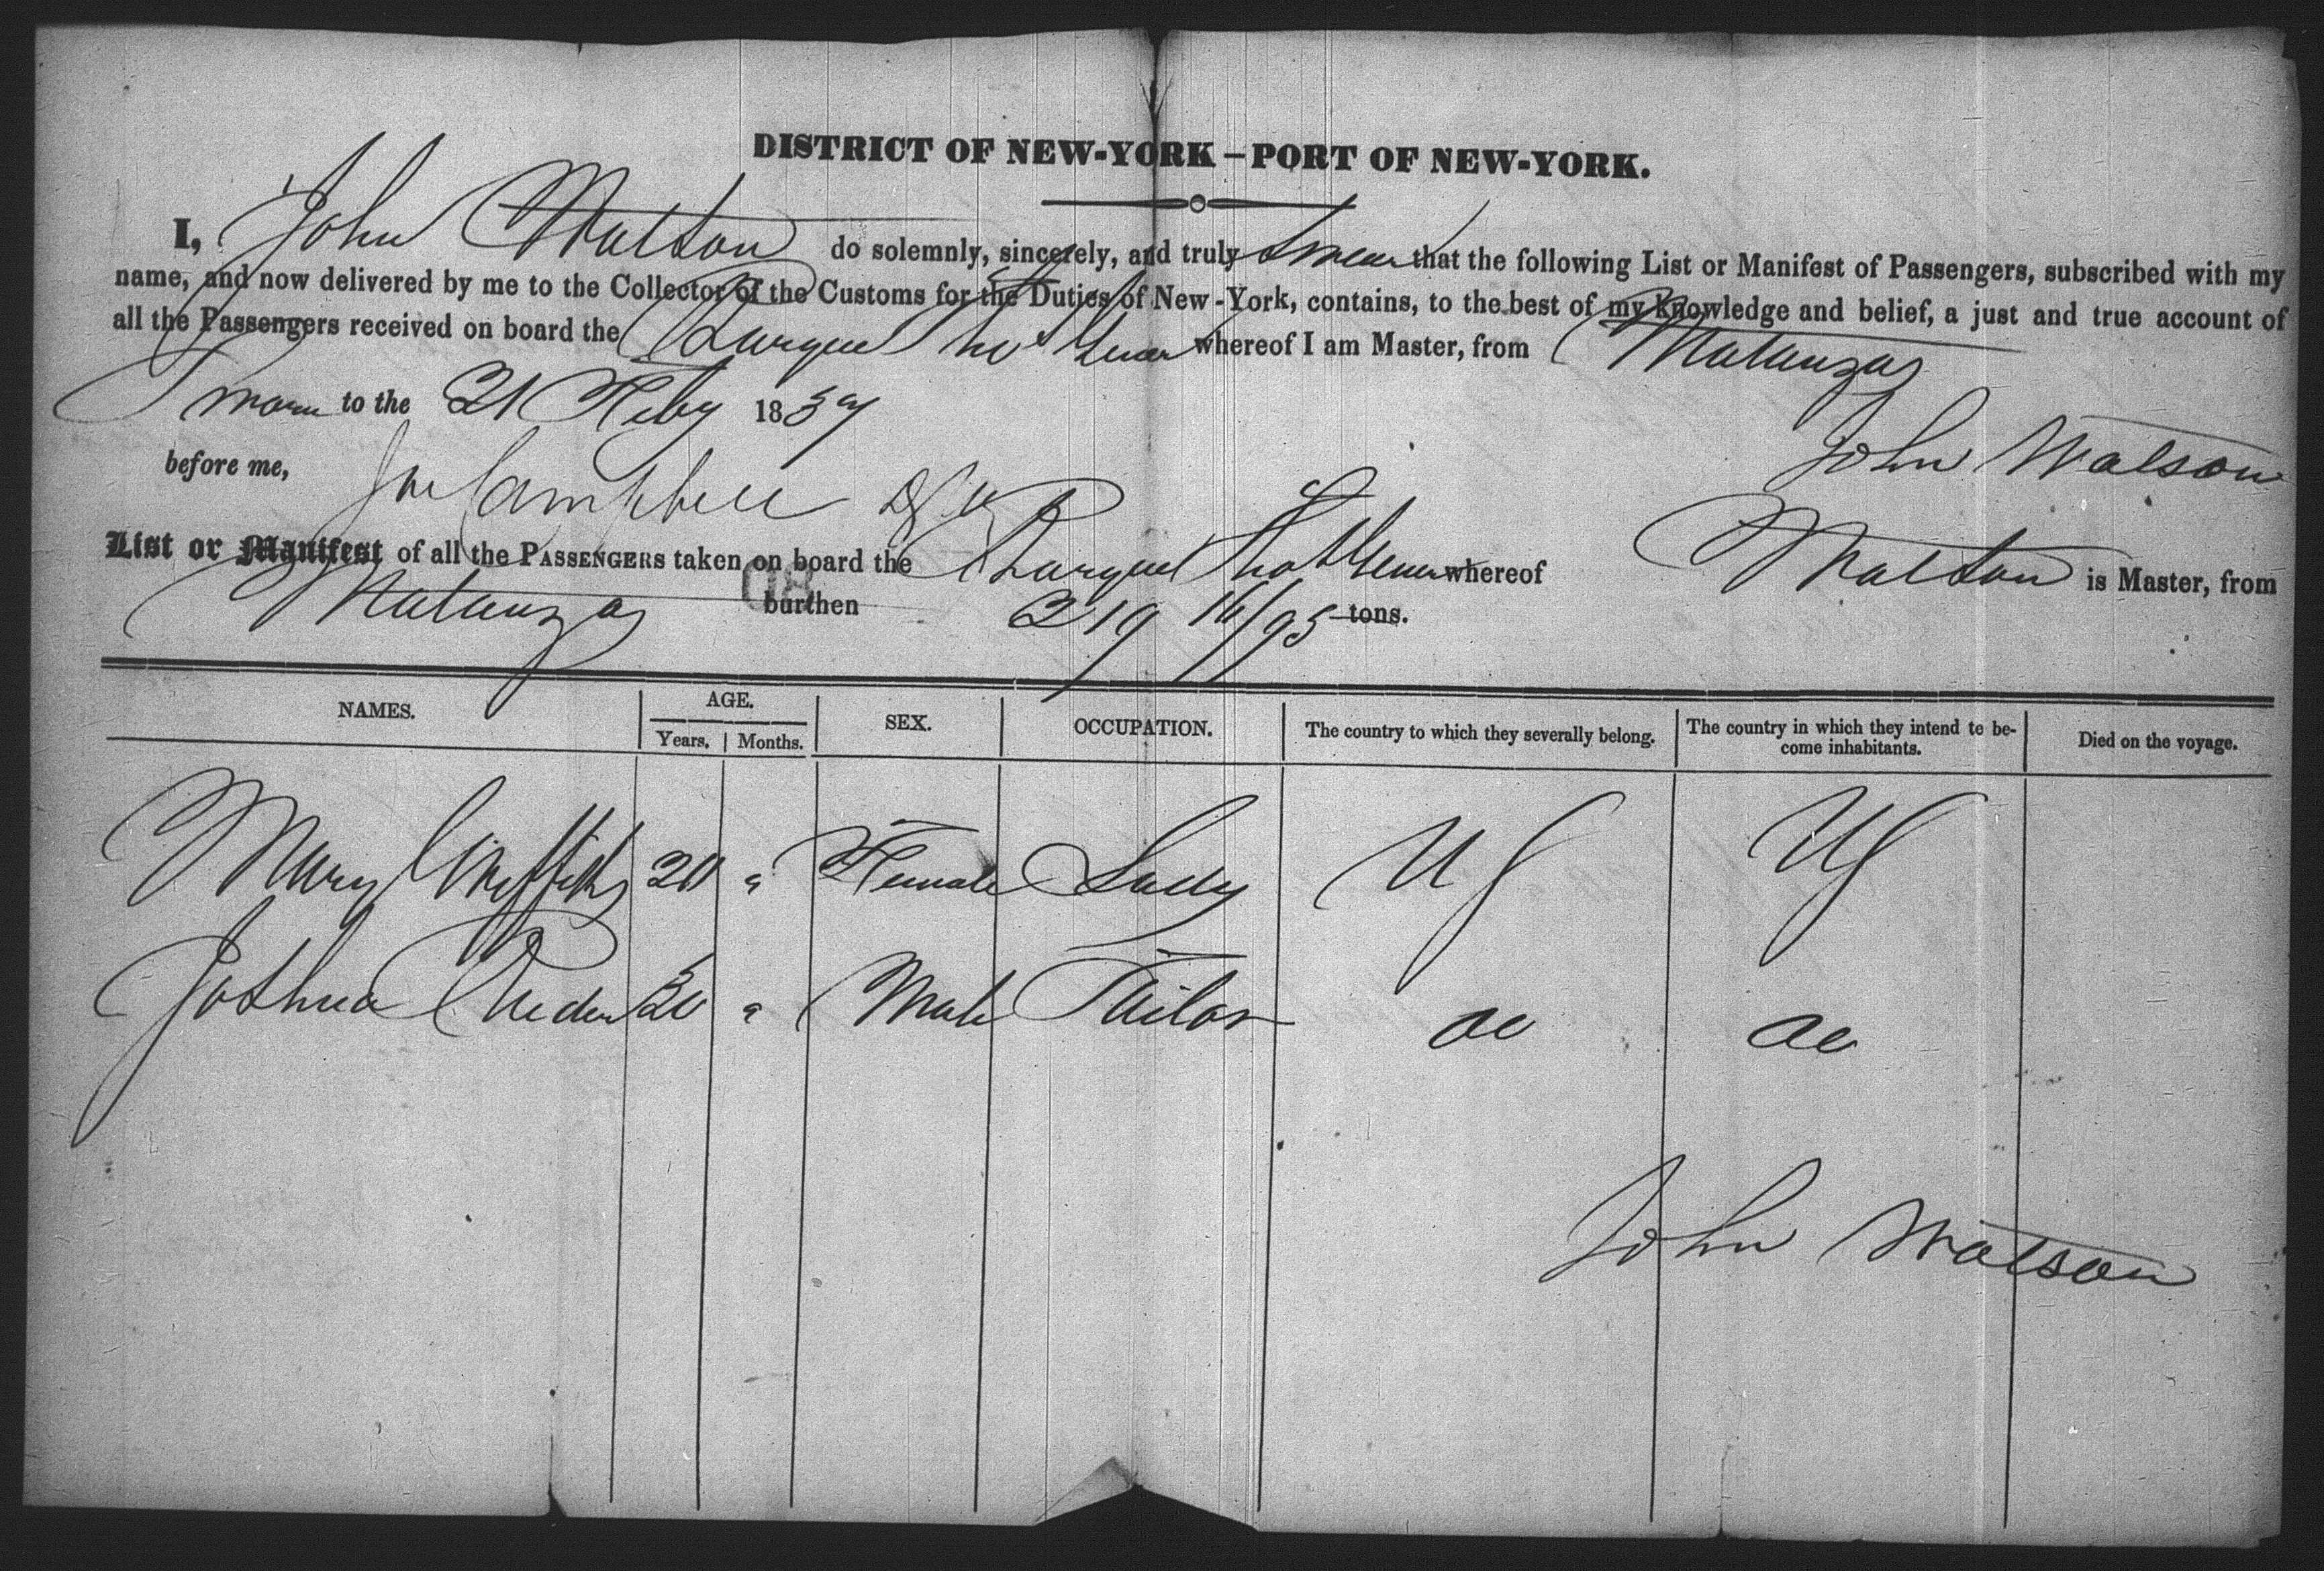 DISTRICT OF NEW-YORK – PORT OF NEW-YORK.
I, John Watson do solemnly, sincerely, and truly swear that the following List or Manifest of Passengers, subscribed with my
name, and now delivered by me to the Collector of the Customs for the Duties of New-York, contains, to the best of my knowledge and belief, a just and true account of
all the Passengers received on board the Barque whereof I am Master, from Matanzas
Sworn to the 21 Feby 1859
John Watson
before me, Campbell
List or Manifest of all the PASSENGERS taken on board the Barque whereof Watson is Master, from
Matanzas burthen 219 11/95 tons.
08
NAMES. AGE. SEX. OCCUPATION. The country to which they severally belong. The country in which they intend to be-
come inhabitants. Died on the voyage.
Years. Months.
Mary Griffiths 20 " Female Lady US US
Joshua 30 " Male Tailor do do
John Watson